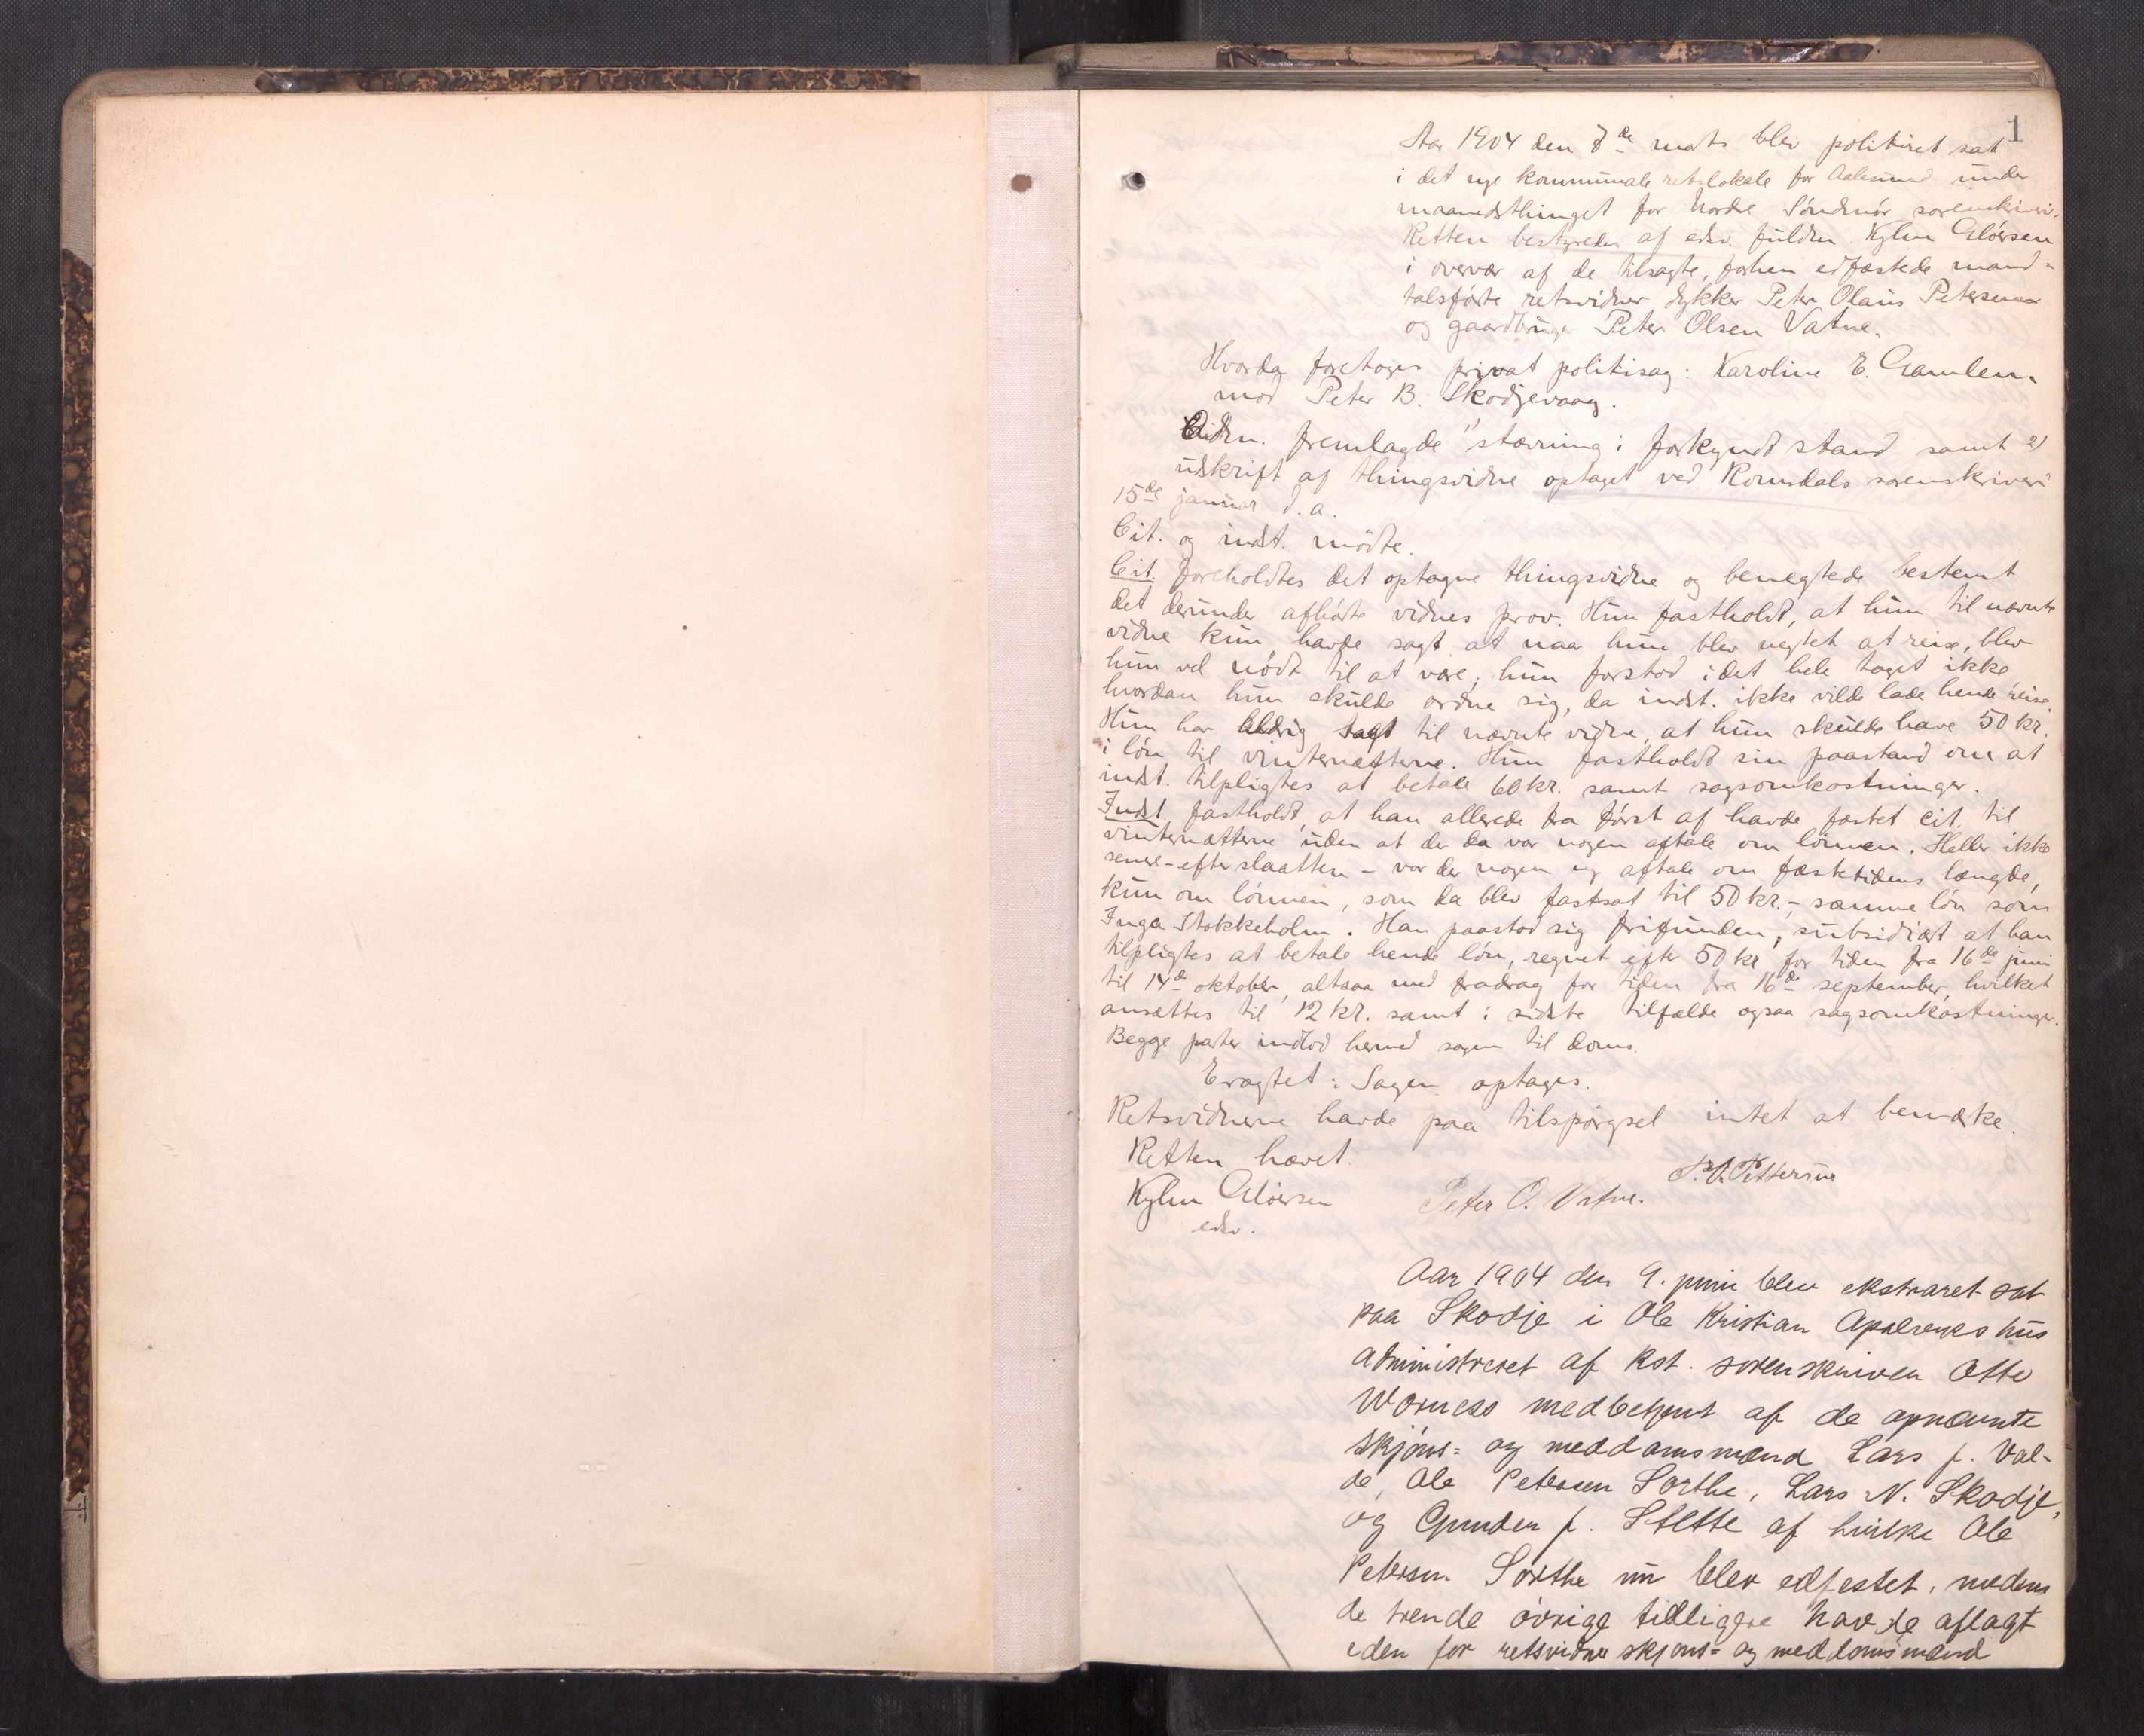 1
Aar 1904 den 8de mats blev politiret sat
i det nye kommunale retslokale for Aalesund under
maanedsthinget for Nordre Söndmör sorenskriveri.
Retten bestyredes af edsv. fuldm. Kylm Alöersen
i overvær af de tilsagte, forhen edfæstede mand-
talsförte retsvidner dykker Peter Olaus Petersen
og gaardbruger Peter Olsen Vatne.
Hvorda foretoges privat politisag: Karoline E. Gamlem
mod Peter B. Skodjevaag.
Adm. fremlagde 1) stævning i forkyndt stand samt 2)
udskrift af thingsvidne optaget ved Romsdals sorenskriveri
15de januar d.a.
Cit. og indst. mödte.
Cit. foreholdtes det optagne thingsvidne og benegtede bestemt
det derunder afhörte vidnes prov. Hun fastholdt, at hun til nævnte
vidne kun havde sagt, at naar hun blev negtet at reise, blev
hun vel nödt til at være; hun forstod i det hele taget ikke
hvordan hun skulde ordne sig, da indst. ikke vilde lade hende reise.
Hun har aldrig sagt til nævnte vidne, at hun skulde have 50 kr.
i lön til vinternætterne. Hun fastholdt sin paastand om at
indst. tilpligtes at betale 60 kr. samt sagsomkostninger.
Indst. fastholdt, at han allerede fra först af havde fæstet cit. til
vinternætterne uden at der da var nogen aftale om lönnen. Heller ikke
senere - efter slaatten - var der nogen ny aftale om fæstetidens længde,
kun om lönnen, som da blev fastsat til 50 kr. - samme lön som
Inga Stokkeholm. Han paastod sig frifunden, subsidiært at han
tilpligtes at betale hende lön, regnet efter 50 kr for tiden fra 16de juni
til 14de oktober, altsaa med fradrag for tiden fra 16de september, hvilket
ansættes til 12 kr. samt i sidste tilfælde ogsaa sagsomkostninger.
Begge parter indlod hermed sagen til doms.
Eragtet: Sagen optages.
Retsvidnerne havde paa tilspörgsel intet at bemærke.
Retten hævet.
Kylm Alöersen
edsv.
Peter O. Vatne.
P. O. Pettersen
Aar 1904 den 9. juni blev ekstraret sat
paa Skodje i Ole Kristian Apalsneshus
administreret af kst. sorenskriver Otto
Worness medbetjent af de opnævnte
skjöns= og meddomsmænd Lars J. Val-
de, Ole Petersen Sorthe, Lars N. Skodje,
og Gunder J. Stette af hvilke Ole
Petersen Sorthe nu blev edfestet, medens
de trende övrige tidligere havde aflagt
eden for retsvidner skjöns= og meddomsmænd